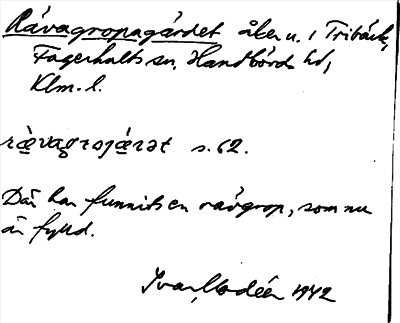 Rävagropagärdet åker u. 1 Tribäck,
Fagerhults sn, Handbörds hd,
Klm. l.
rävagrojärət s. 62.
Där har funnits en rävgrop, som nu
är fylld.
Ivar Modéer 1942